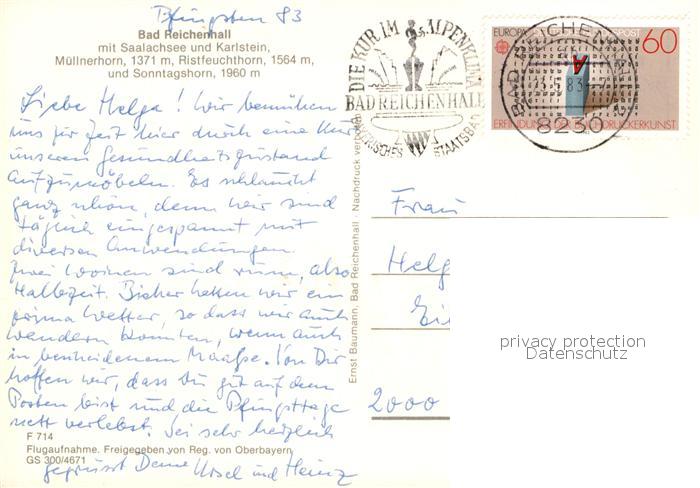 Pfingsten 83
Bad Reichenhall
mit Saalachsee und Karlstein,
Müllnerhorn, 1371 m, Ristfeuchthorn, 1564 m,
und Sonntagshorn, 1960 m
Liebe Helga! Wir bemühen
uns zur Zeit hier durch eine Kur
unseren Gesundheitszustand
aufzumöbeln. Es schlaucht
ganz schön, denn wir sind
täglich eingespannt mit
diversen Anwendungen.
Zwei Wochen sind rum, also
Halbzeit. Bisher hatten wir ein
prima Wetter, so dass wir auch
wandern konnten, wenn auch
in bescheidenem Maaße. Von Dir
hoffen wir, dass Du gut auf dem
Posten bist und die Pfingsttage
nett verlebst. Sei sehr herzlich
gegrüsst Deine Ursel und Heinz
F 714
Flugaufnahme. Freigegeben von Reg. von Oberbayern
GS 300/4671
Ernst Baumann, Bad Reichenhall · Nachdruck verboten
DIE KUR IM ALPENKLIMA
BAD REICHENHALL
BAYERISCHES STAATSBAD
EUROPA
60
BAD REICHENHALL
83
8230
Frau
Helg
Ei
2000
privacy protection
Datenschutz